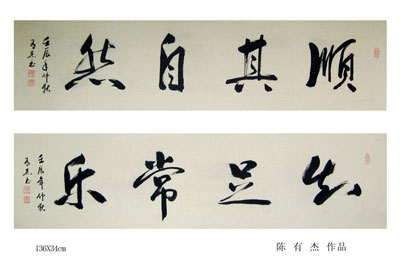 順其自然
壬辰年仲秋
有杰书
知足常乐
壬辰年仲秋
有杰书
136X34cm
陈有杰 作品